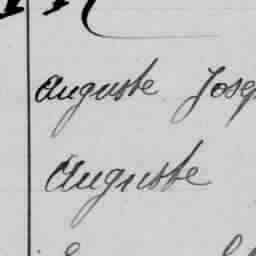 Auguste Josep
Auguste